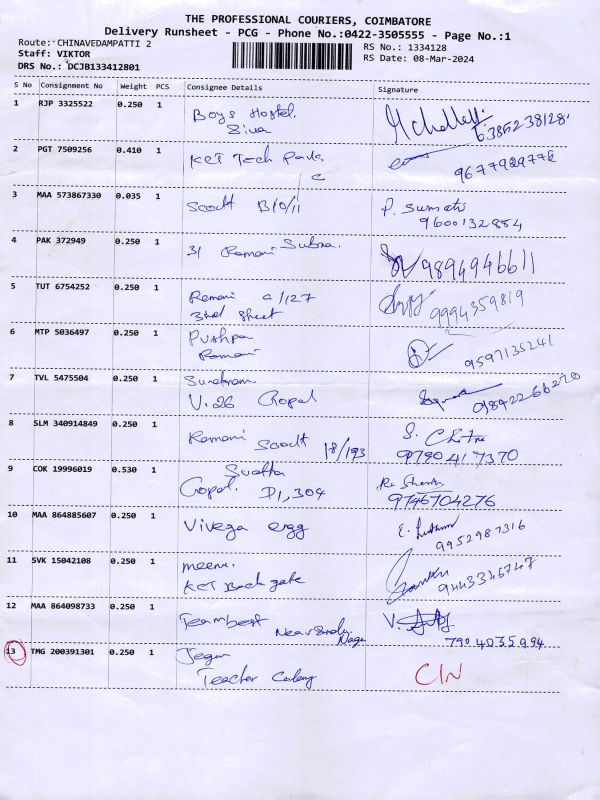 THE PROFESSIONAL COURIERS, COIMBATORE
Delivery Runsheet - PCG - Phone No.:0422-3505555 - Page No.:1
Route: CHINAVEDAMPATTI 2
RS No.: 1334128
Staff: VIKTOR
RS Date: 08-Mar-2024
DRS No.: DCJB133412801
S No Consignment No Weight PCS Consignee Details Signature
1 RJP 3325522 0.250 1 Boys Hostel.
Siva 6385238128.
2 PGT 7509256 0.410 1 KCT Tech Park.
C
3 MAA 573867330 0.035 1 Scodt B/0/11 P. Sumathi
9600132884
4 PAK 372949 0.250 1 31 Ramani Subra. 9894946611
5 TUT 6754252 0.250 1 Ramani C/127 9994359819
3rd Street
6 MTP 5036497 0.250 1 Pushpa
Ramani 9597135241
7 TVL 5475504 0.250 1 Sundram.
V.26 Gopal 9842266270
8 SLM 340914849 0.250 1 Ramani Scodt 18/193 S. Chitra
9790417370
9 COK 19996019 0.530 1
Gopal. D1,304 9746704276
10 MAA 864885607 0.250 1 Vivega egg
9952987316
11 SVK 15042108 0.250 1 meenu.
KCT Back gate 9443346747
12 MAA 864098733 0.250 1 Teambest V.
Near Sindu Nagar 7904035994
13 TMG 200391301 0.250 1 Jegan CIN
Teacher Colony